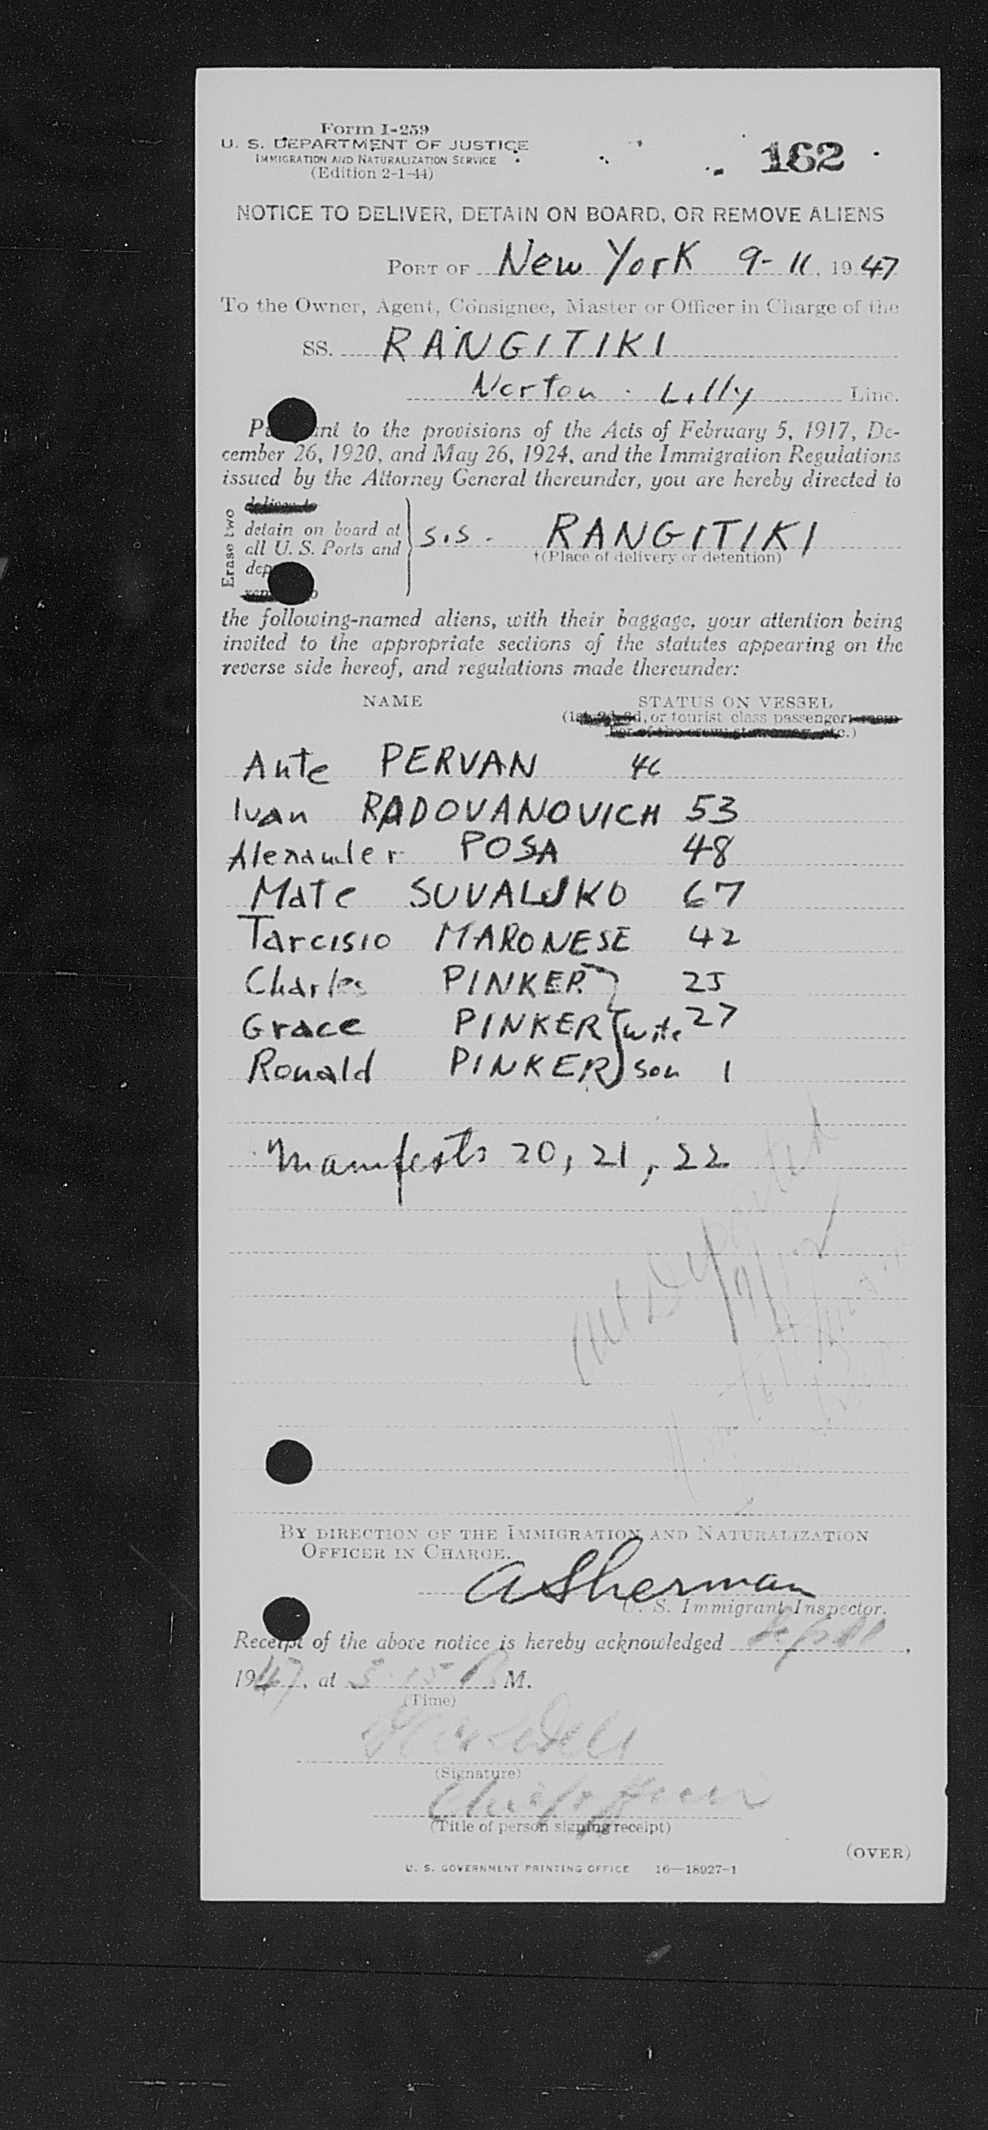 Form I-259
U. S. DEPARTMENT OF JUSTICE
IMMIGRATION AND NATURALIZATION SERVICE
(Edition 2-1-44)
162
NOTICE TO DELIVER, DETAIN ON BOARD, OR REMOVE ALIENS
PORT OF New York 9-11, 1947
To the Owner, Agent, Consignee, Master or Officer in Charge of the
SS. RANGITIKI
Norton - Lilly Line.
to the provisions of the Acts of February 5, 1917, De-
cember 26, 1920, and May 26, 1924, and the Immigration Regulations
issued by the Attorney General thereunder, you are hereby directed to
Erase two
deliver to
detain on board at
all U. S. Ports and
S.S. RANGITIKI
†(Place of delivery or detention)
the following-named aliens, with their baggage, your attention being
invited to the appropriate sections of the statutes appearing on the
reverse side hereof, and regulations made thereunder:
NAME STATUS ON VESSEL
or tourist class passenger;
Ante PERVAN
Ivan RADOVANOVICH 53
Alexander POSA 48
Mate 67
Tarcisio MARONESE 42
Charles PINKER 25
Grace PINKER wife 27
Ronald PINKER son 1
Manifests 20, 21, 22
BY DIRECTION OF THE IMMIGRATION AND NATURALIZATION
OFFICER IN CHARGE.
A Sherman
U. S. Immigrant Inspector.
Receipt of the above notice is hereby acknowledged Sept 11,
1947, at 3-15 P.M.
(Time)
(Signature)
Chief Officer
(Title of person signing receipt)
(OVER)
U. S. GOVERNMENT PRINTING OFFICE 16—18927-1